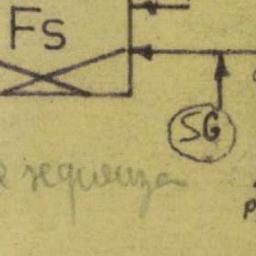 Fs
SG
sequenza
p